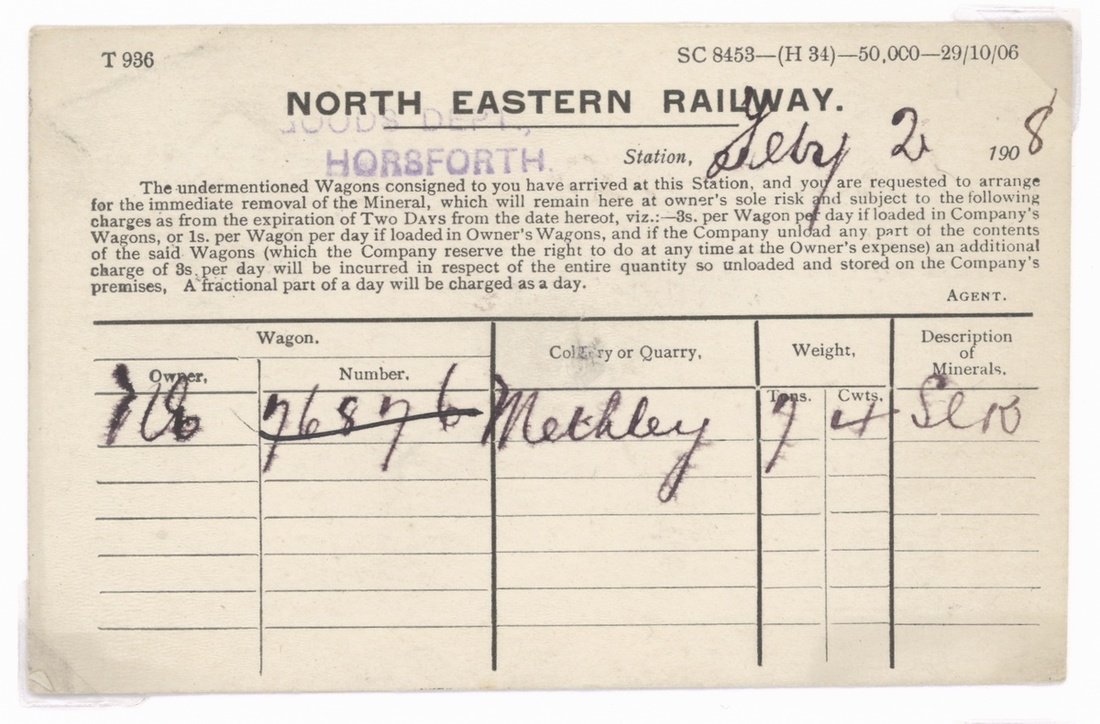 T 936 SC 8453—(H 34)—50,000—29/10/06
NORTH EASTERN RAILWAY.
GOODS DEPT.,
HORSFORTH.
Station, 2 1908
The undermentioned Wagons consigned to you have arrived at this Station, and you are requested to arrange
for the immediate removal of the Mineral, which will remain here at owner's sole risk and subject to the following
charges as from the expiration of Two Days from the date hereof, viz.:—3s. per Wagon per day if loaded in Company's
Wagons, or 1s. per Wagon per day if loaded in Owner's Wagons, and if the Company unload any part of the contents
of the said Wagons (which the Company reserve the right to do at any time at the Owner's expense) an additional
charge of 3s. per day will be incurred in respect of the entire quantity so unloaded and stored on the Company's
premises, A fractional part of a day will be charged as a day.
AGENT.
Wagon. Colliery or Quarry, Weight, Description of Minerals.
Owner, Number. Tons. Cwts.
76876 Methley 7 4